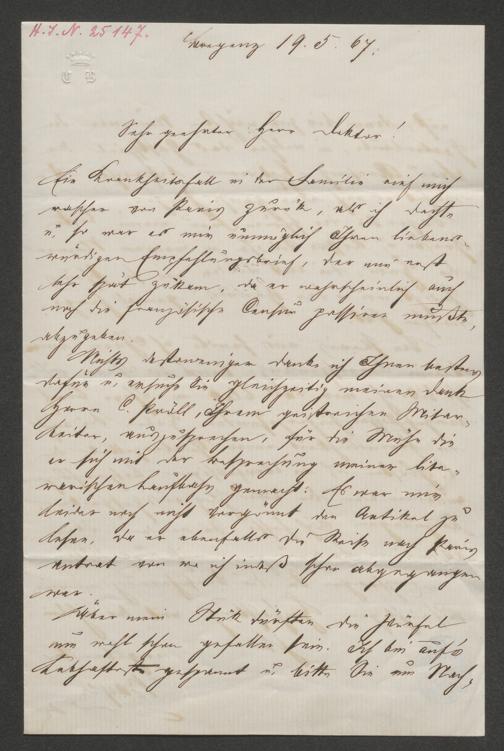 H.I.N. 25147.
Bregenz 19. 5. 67.
C B
Sehr geehrter Herr Doktor!
Ein Krankheitsfall in der Familie rief mich
rascher von Paris zurük, als ich dachte
u. so war es mir unmöglich Ihren liebens-
würdigen Empfehlungsbrief, der mir erst
sehr spät zukam, da er wahrscheinlich auch
noch die französische Censur passiren mußte,
abzugeben.
Nichts destoweniger danke ich Ihnen bestens
dafür u. ersuche Sie gleichzeitig meinen Dank
Herrn C. Pröll, Ihrem geistreichen Mitar-
beiter, auszusprechen, für die Mühe die
er sich mit der Besprechung meiner lite-
rarischen Laufbahn gemacht. Es war mir
leider noch nicht vergönnt den Artikel zu
lesen, da er ebenfalls die Reise nach Paris
antrat von wo ich indeß schon abgegangen
war.
Über mein Stük dürften die Würfel
nun wohl schon gefallen sein. Ich bin aufs
Lebhafteste gespannt u. bitte Sie um Nach-